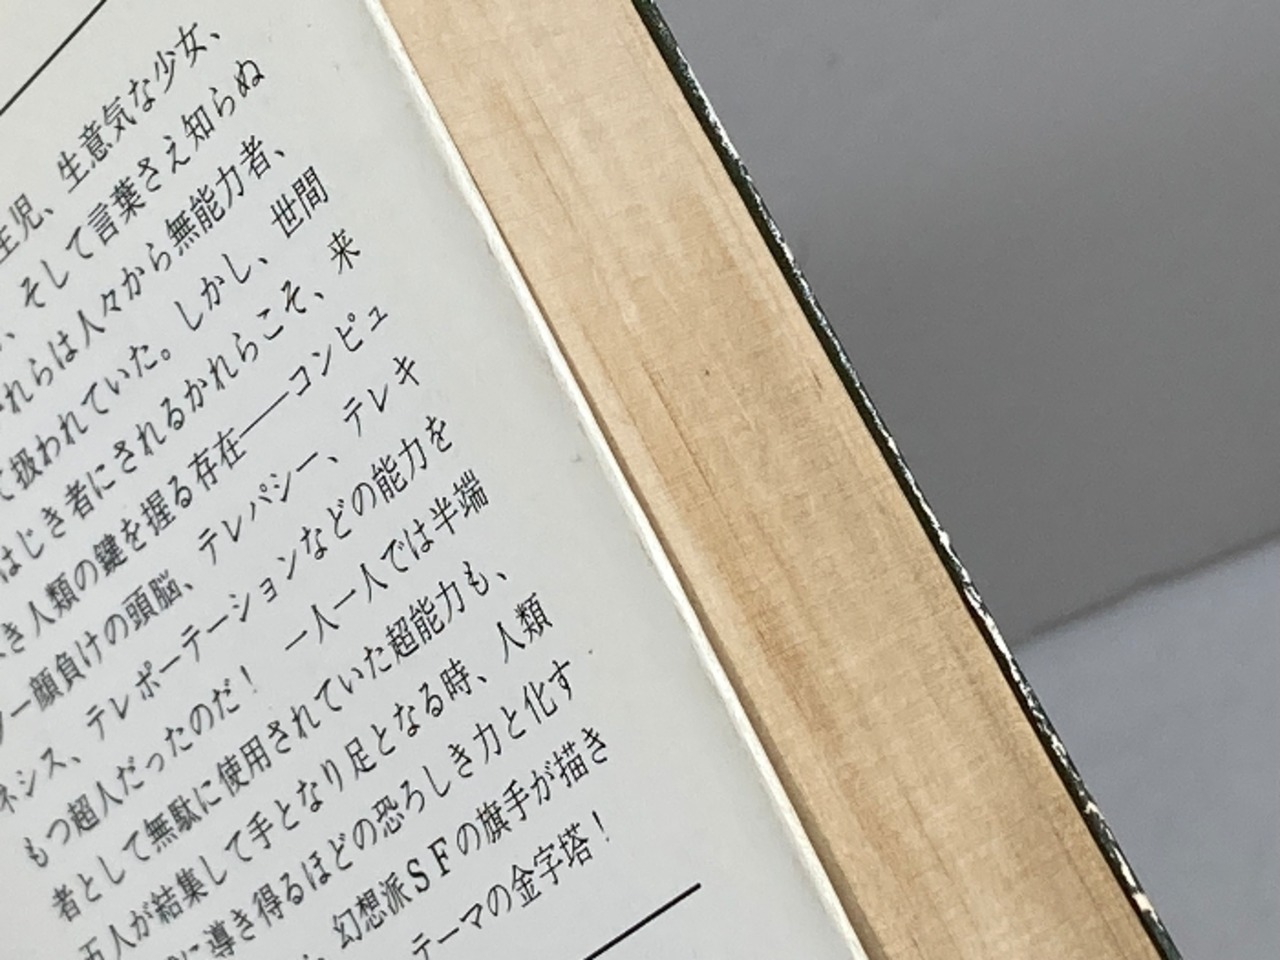 生児、生意気な少女、
、そして言葉さえ知らぬ
れらは人々から無能力者、
て扱われていた。しかし、世間
はじき者にされるかれらこそ、来
き人類の鍵を握る存在――コンピュ
ター顔負けの頭脳、テレパシー、テレキ
ネシス、テレポーテーションなどの能力を
もつ超人だったのだ！ 一人一人では半端
者として無駄に使用されていた超能力も、
五人が結集して手となり足となる時、人類
に導き得るほどの恐ろしき力と化す
、幻想派ＳＦの旗手が描き
テーマの金字塔！